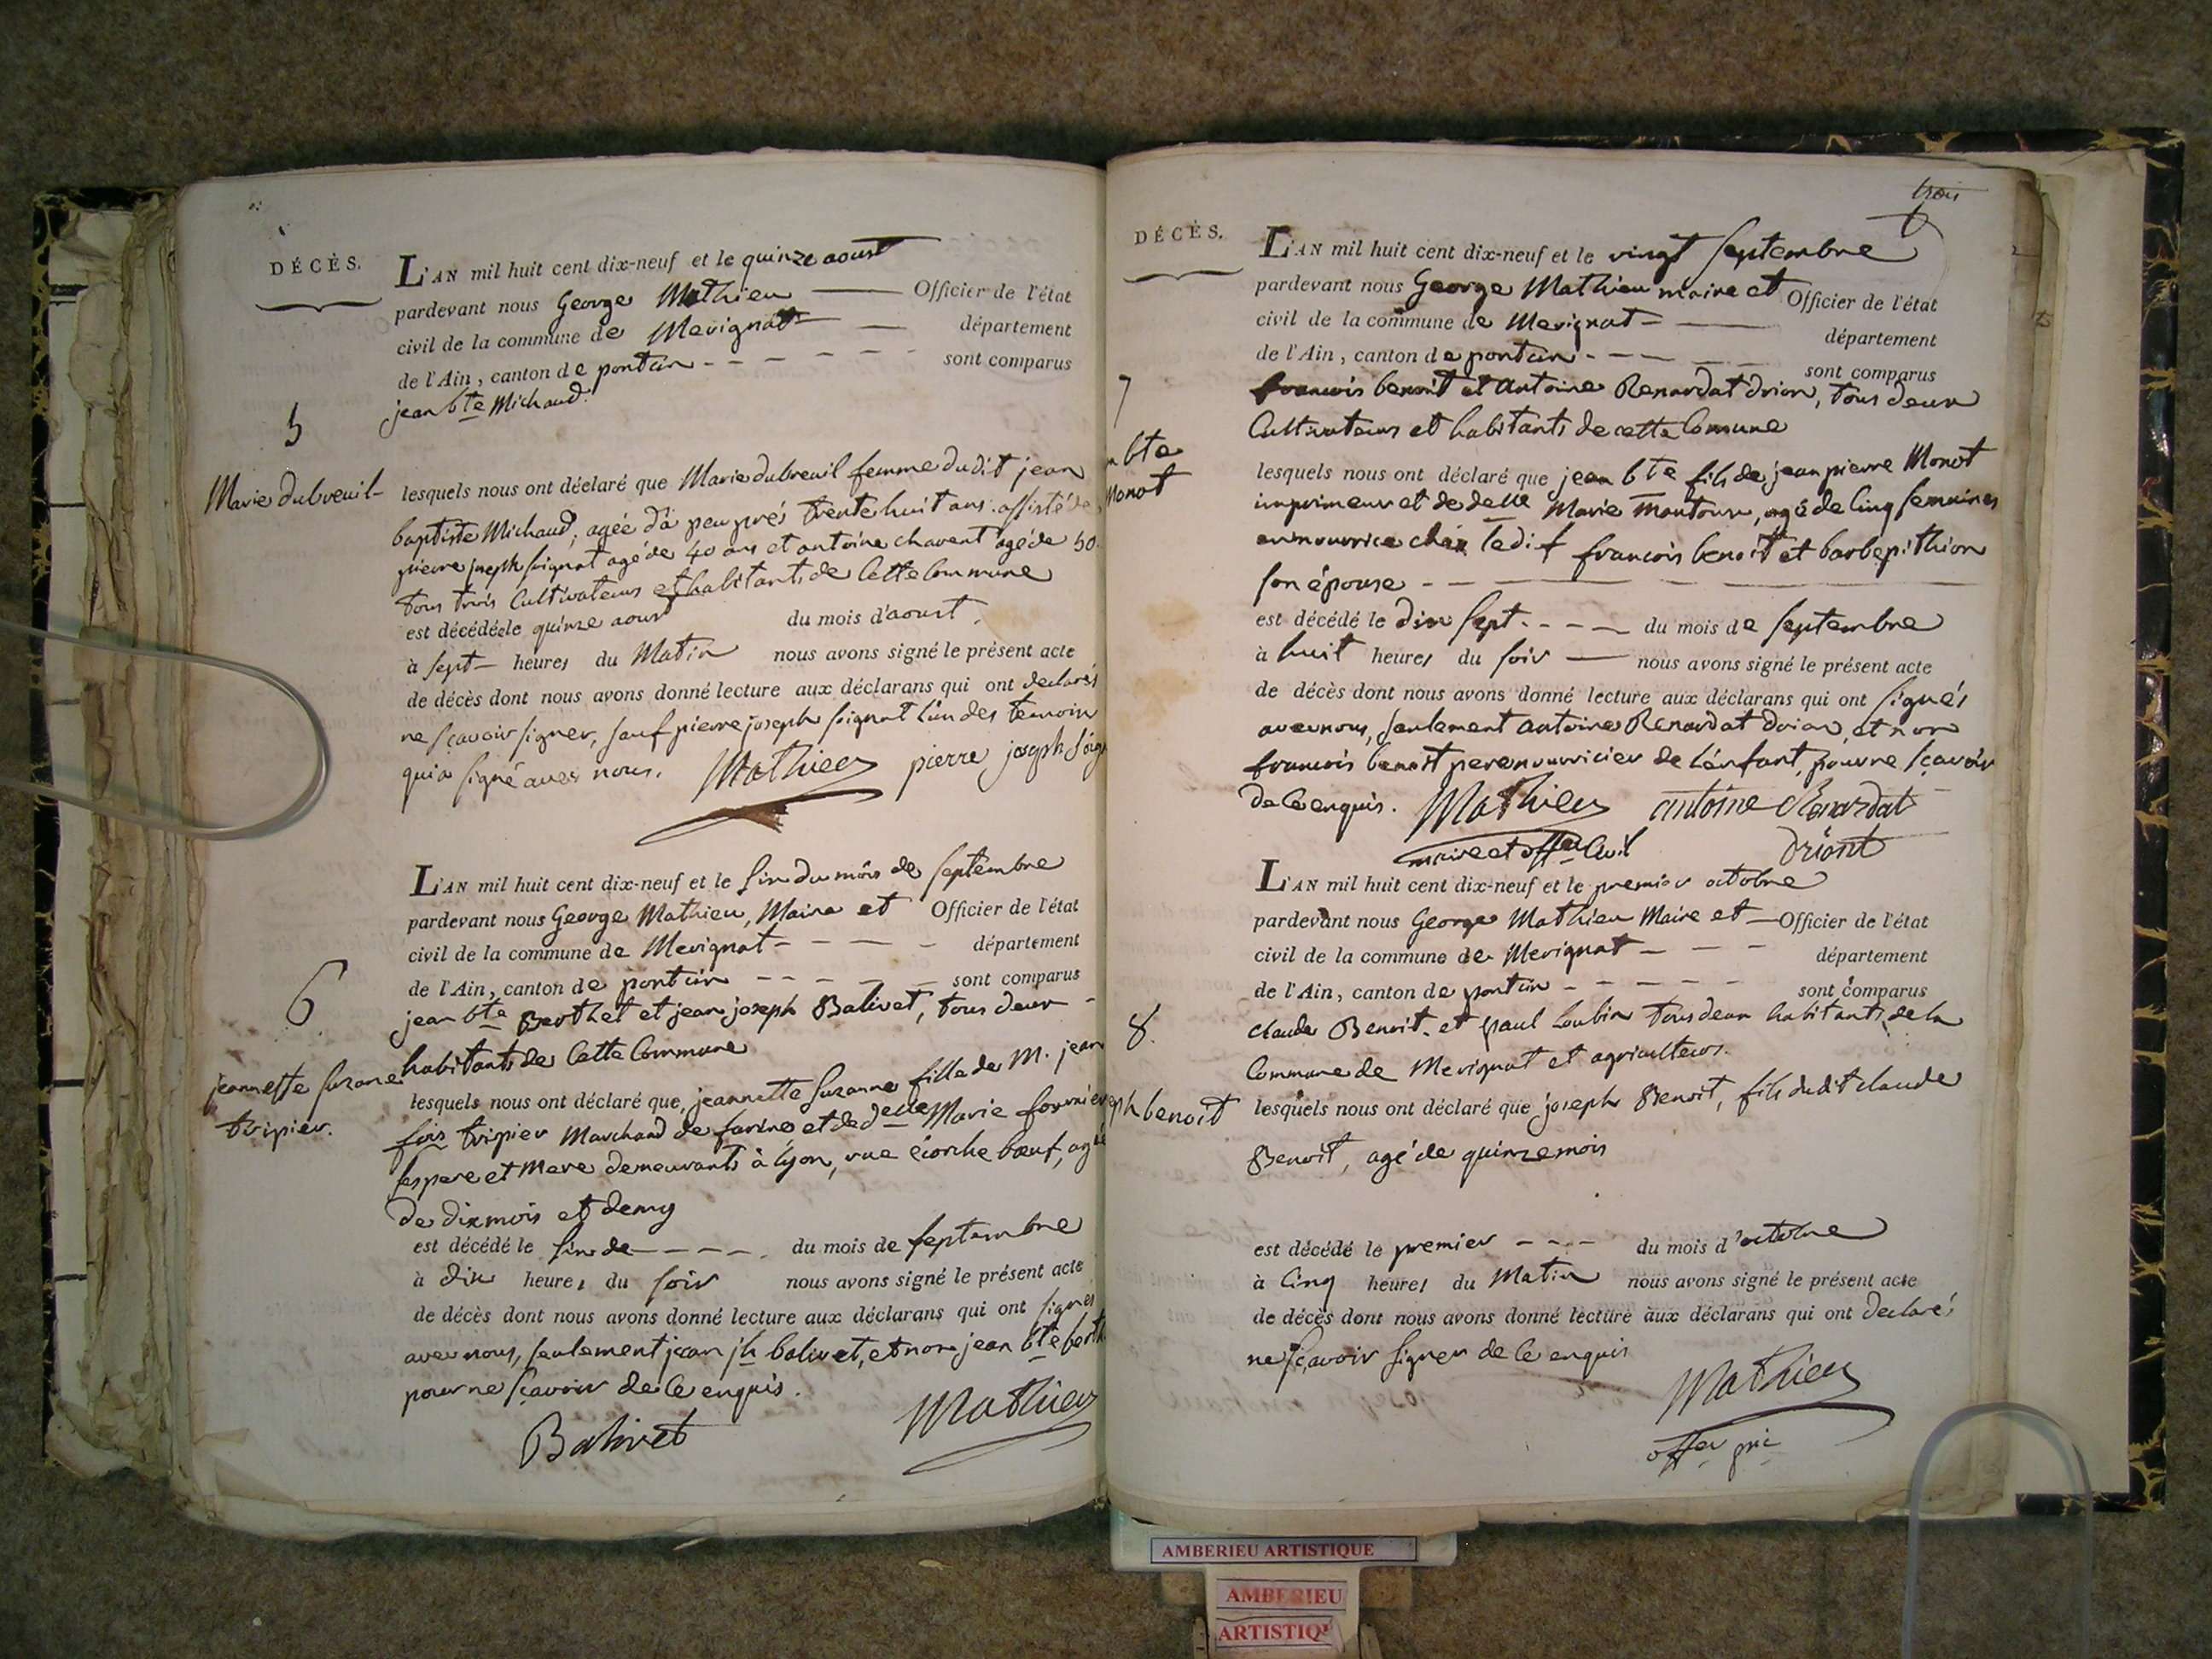 DÉCÈS.
L'AN mil huit cent dix-neuf et le quinze aoust
pardevant nous George Mathieu Officier de l'état
civil de la commune de Merignat département
de l'Ain, canton de poncin sont comparus
jean bte Michaud.
5
Marie dubreuil
lesquels nous ont déclaré que Marie dubreuil femme dudit jean
baptiste Michaud, agée d'à peu prés trente huit ans. assisté de
pierre joseph soignat agé de 40 ans et antoine chavent agé de 50.
tous trois Cultivateurs et habitants de Cette Commune
est décédée le quinze aoust du mois d'aoust.
à sept heures du Matin nous avons signé le présent acte
de décès dont nous avons donné lecture aux déclarans qui ont declarés
ne sçavoir signer, sauf pierre joseph soignat l'un des temoin
qui a signé avec nous. Mathieu pierre joseph
L'AN mil huit cent dix-neuf et le six du mois de septembre
pardevant nous George Mathieu, Maire et Officier de l'état
civil de la commune de Merignat département
de l'Ain, canton de poncin sont comparus
6
jean bte Berthet et jean joseph Balivet, tous deux
habitants de Cette Commune
jeannette suzane
tripier.
lesquels nous ont déclaré que, jeannette suzanne fille de M. jean
fois tripier Marchand de farine et de delle Marie fournier
ses pere et Mere demeurants à lyon, rue écorche bœuf, agée
de dix mois et demy
est décédé le six de du mois de septembre
à dix heures du soir nous avons signé le présent acte
de décès dont nous avons donné lecture aux déclarans qui ont signés
avec nous, seulement jean jh balivet, et non jean bte
pour ne sçavoir de Ce enquis.
Balivet Mathieu
trois
DÉCÈS.
L'AN mil huit cent dix-neuf et le vingt septembre
pardevant nous George Mathieu maire et Officier de l'état
civil de la commune de Merignat département
de l'Ain, canton de poncin sont comparus
7
francois benoit et antoine Renardat drion, tous deux
Cultivateurs et habitants de cette Comune
bte
Monot
lesquels nous ont déclaré que jean bte fils de jean pierre Monot
imprimeur et de delle Marie , agé de Cinq semaines
en nourrice chéz ledit francois benoit et barbe pithion
son épouse
est décédé le dix sept du mois de septembre
à huit heures du soir nous avons signé le présent acte
de décès dont nous avons donné lecture aux déclarans qui ont signés
avec nous, seulement antoine Renardat drion, et non
francois benoit pere nourricier de l'enfant, pour ne sçavoir
de Ce enquis. Mathieu antoine Renardat
maire et offer Civil driont
L'AN mil huit cent dix-neuf et le premier octobre
pardevant nous George Mathieu Maire et Officier de l'état
civil de la commune de Merignat département
de l'Ain, canton de poncin sont comparus
8.
claude Benoit. et paul loubin tous deux habitants de la
Commune de Merignat et agriculteurs.
benoit
lesquels nous ont déclaré que joseph Benoit, fils dudit claude
Benoit, agé de quinze mois
est décédé le premier du mois d'octobre
à Cinq heures du Matin nous avons signé le présent acte
de décès dont nous avons donné lecture aux déclarans qui ont declarés
ne sçavoir signer de Ce enquis
Mathieu
offer
AMBERIEU ARTISTIQUE
AMBERIEU
ARTISTIQU